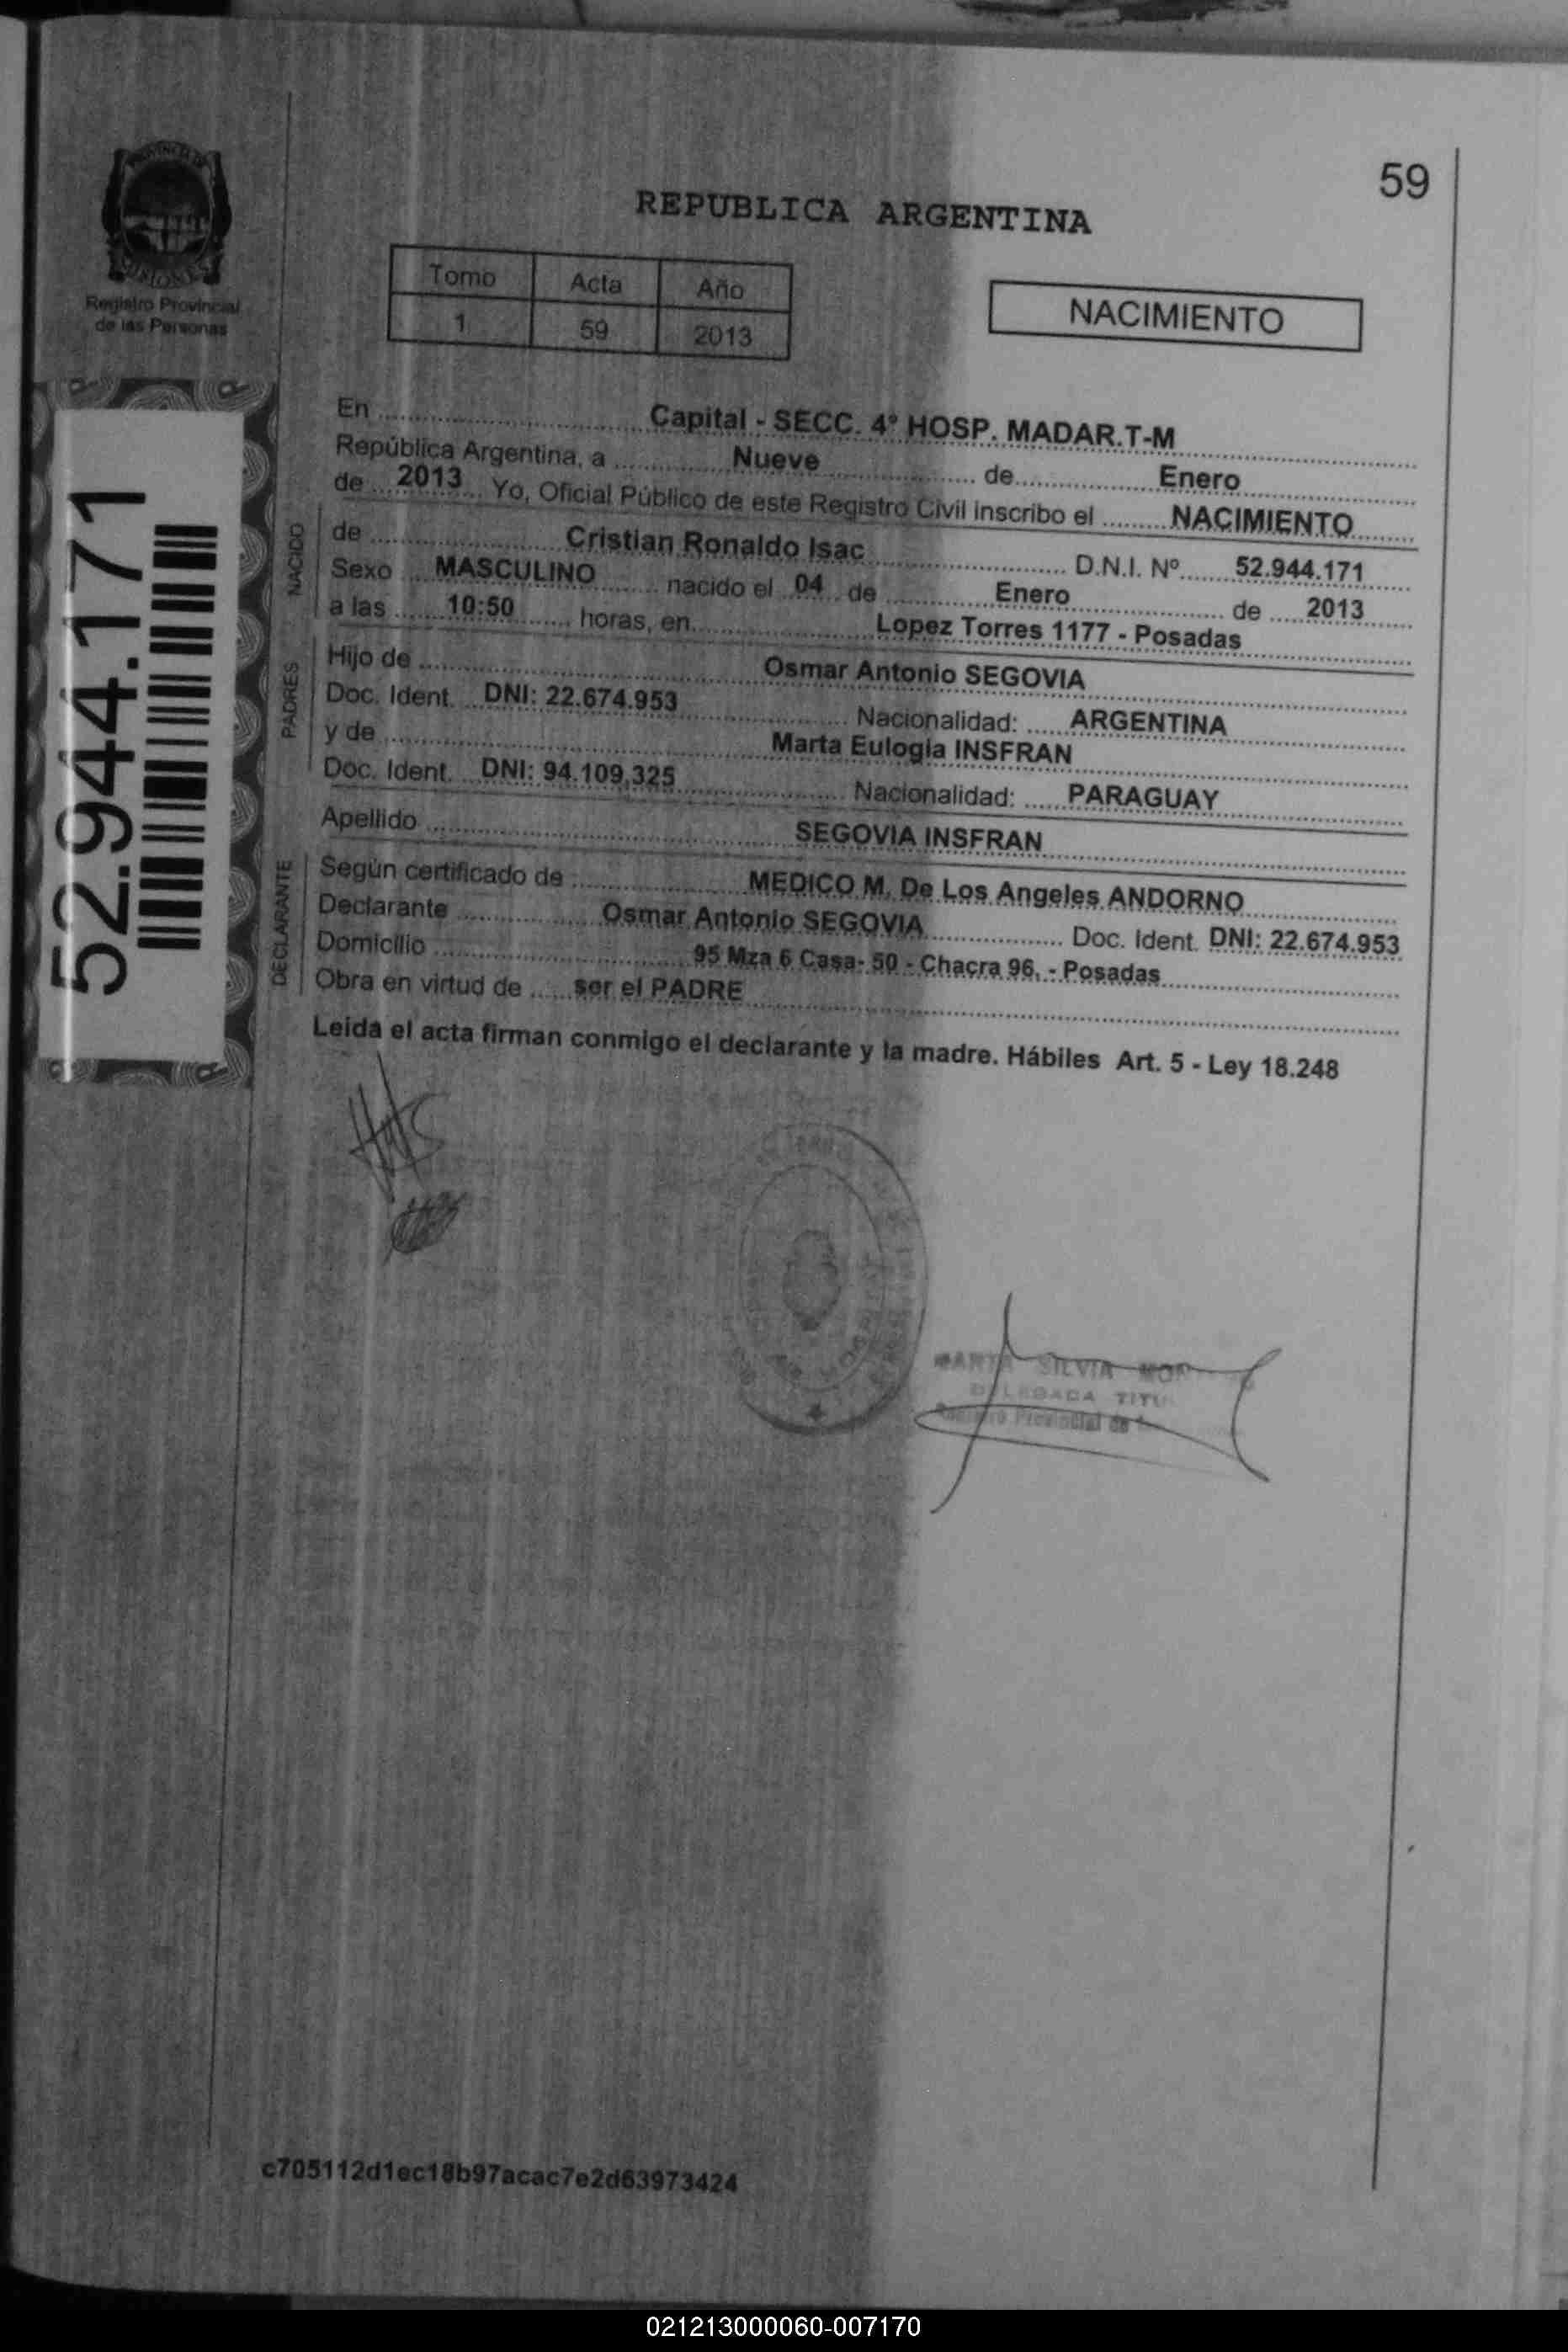 59
PROVINCIA DE
MISIONES
Registro Provincial
de las Personas
REPUBLICA ARGENTINA
Tomo Acta Año
1 59 2013
NACIMIENTO
52.944.171
En Capital - SECC. 4° HOSP. MADAR.T-M
República Argentina, a Nueve de Enero
de 2013 Yo, Oficial Público de este Registro Civil inscribo el NACIMIENTO
NACIDO
de Cristian Ronaldo Isac D.N.I. Nº 52.944.171
Sexo MASCULINO nacido el 04 de Enero de 2013
a las 10:50 horas, en Lopez Torres 1177 - Posadas
PADRES
Hijo de Osmar Antonio SEGOVIA
Doc. Ident. DNI: 22.674.953 Nacionalidad: ARGENTINA
y de Marta Eulogia INSFRAN
Doc. Ident. DNI: 94.109.325 Nacionalidad: PARAGUAY
Apellido SEGOVIA INSFRAN
DECLARANTE
Según certificado de MEDICO M. De Los Angeles ANDORNO
Declarante Osmar Antonio SEGOVIA Doc. Ident. DNI: 22.674.953
Domicilio 95 Mza 6 Casa- 50 - Chacra 96, - Posadas
Obra en virtud de ser el PADRE
Leida el acta firman conmigo el declarante y la madre. Hábiles Art. 5 - Ley 18.248
MARTA SILVIA
DELEGADA
Registro Provincial de
c705112d1ec18b97acac7e2d63973424
021213000060-007170